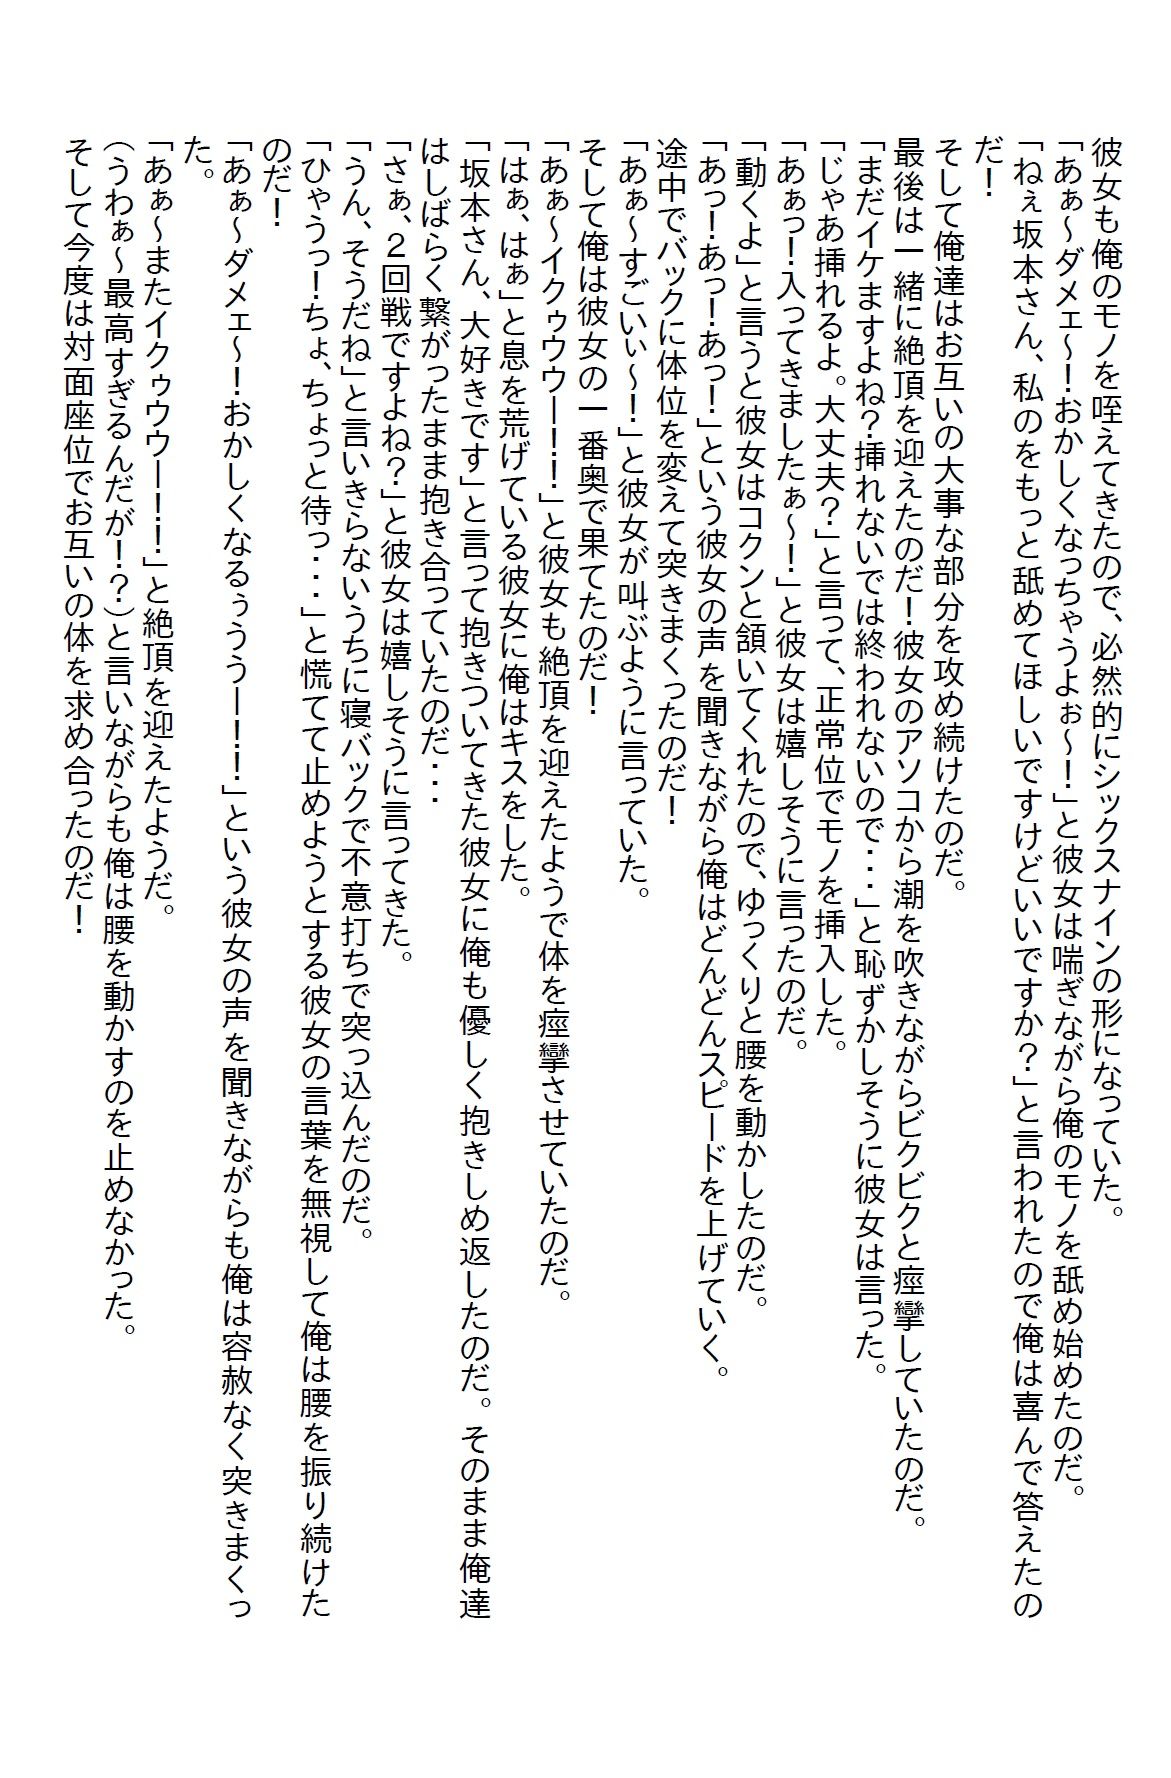 彼女も俺のモノを咥えてきたので、必然的にシックスナインの形になっていた。
「あぁ～ダメェ～！おかしくなっちゃうよぉ～！」と彼女は喘ぎながら俺のモノを舐め始めたのだ。
「ねぇ坂本さん、私のをもっと舐めてほしいですけどいいですか？」と言われたので俺は喜んで答えたの
だ！
そして俺達はお互いの大事な部分を攻め続けたのだ。
最後は一緒に絶頂を迎えたのだ！彼女のアソコから潮を吹きながらビクビクと痙攣していたのだ。
「まだイケますよね？挿れないでは終われないので・・・」と恥ずかしそうに彼女は言った。
「じゃあ挿れるよ。大丈夫？」と言って、正常位でモノを挿入した。
「あぁっ！入ってきましたぁ～！」と彼女は嬉しそうに言ったのだ。
「動くよ」と言うと彼女はコクンと頷いてくれたので、ゆっくりと腰を動かしたのだ。
「あっ！あっ！あっ！」という彼女の声を聞きながら俺はどんどんスピードを上げていく。
途中でバックに体位を変えて突きまくったのだ！
「あぁ～すごいぃ～！」と彼女が叫ぶように言っていた。
そして俺は彼女の一番奥で果てたのだ！
「あぁ～イクゥウウー！！」と彼女も絶頂を迎えたようで体を痙攣させていたのだ。
「はぁ、はぁ」と息を荒げている彼女に俺はキスをした。
「坂本さん、大好きです」と言って抱きついてきた彼女に俺も優しく抱きしめ返したのだ。そのまま俺達
はしばらく繋がったまま抱き合っていたのだ・・・
「さぁ、２回戦ですよね？」と彼女は嬉しそうに言ってきた。
「うん、そうだね」と言いきらないうちに寝バックで不意打ちで突っ込んだのだ。
「ひゃうっ！ちょ、ちょっと待っ・・・」と慌てて止めようとする彼女の言葉を無視して俺は腰を振り続けた
のだ！
「あぁ～ダメェ～！おかしくなるぅううー！！」という彼女の声を聞きながらも俺は容赦なく突きまくっ
た。
「あぁ～またイクゥウウー！！」と絶頂を迎えたようだ。
（うわぁ～最高すぎるんだが！？）と言いながらも俺は腰を動かすのを止めなかった。
そして今度は対面座位でお互いの体を求め合ったのだ！